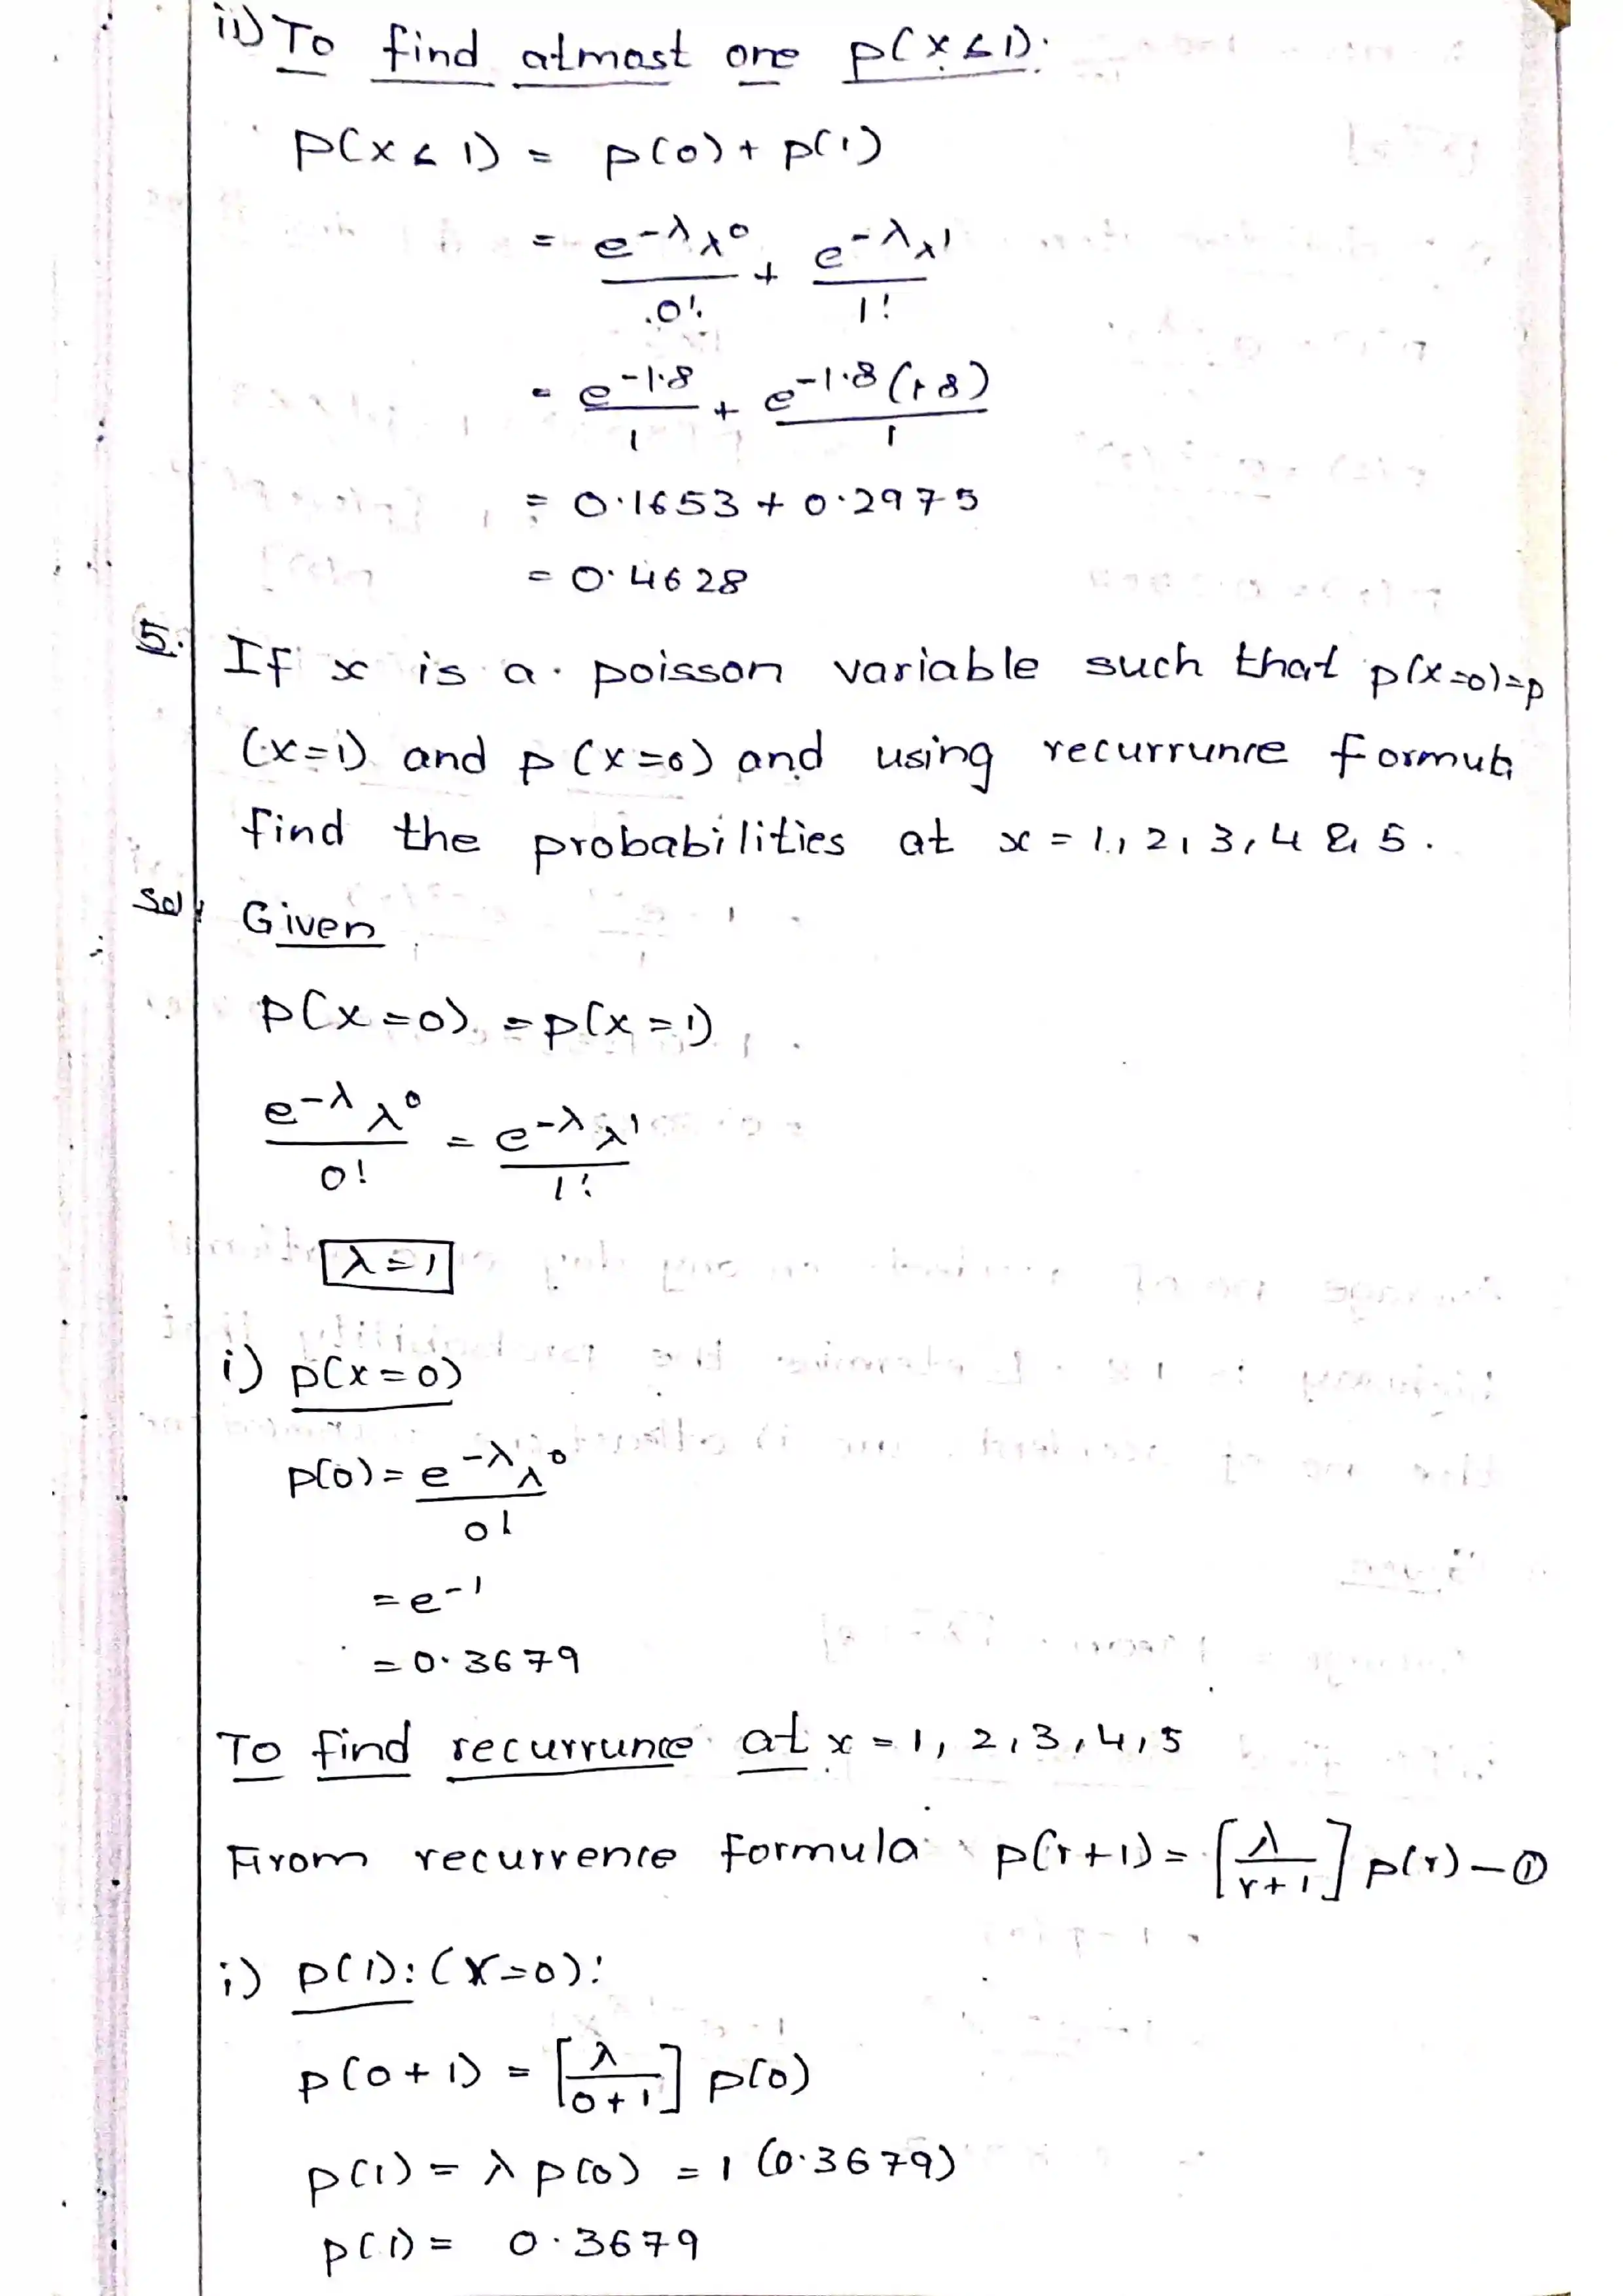 ii) To find atmost one p(x≤1):
p(x ≤ 1) = p(0) + p(1)
= e^-λ λ^0 / 0! + e^-λ λ^1 / 1!
= e^-1.8 / 1 + e^-1.8 (1.8) / 1
= 0.1653 + 0.2975
= 0.4628
5. If x is a poisson variable such that p(x=0)=p
(x=1) and p(x=0) and using recurrunce formula
find the probabilities at x = 1, 2, 3, 4 & 5.
Sol Given
p(x=0) = p(x=1)
e^-λ λ^0 / 0! = e^-λ λ^1 / 1!
λ=1
i) p(x=0)
p(0) = e^-λ λ^0 / 0!
= e^-1
= 0.3679
To find recurrunce at x = 1, 2, 3, 4, 5
From recurrence formula p(r+1) = [λ / r+1] p(r) — ①
i) p(1): (r=0):
p(0+1) = [λ / 0+1] p(0)
p(1) = λ p(0) = 1 (0.3679)
p(1) = 0.3679